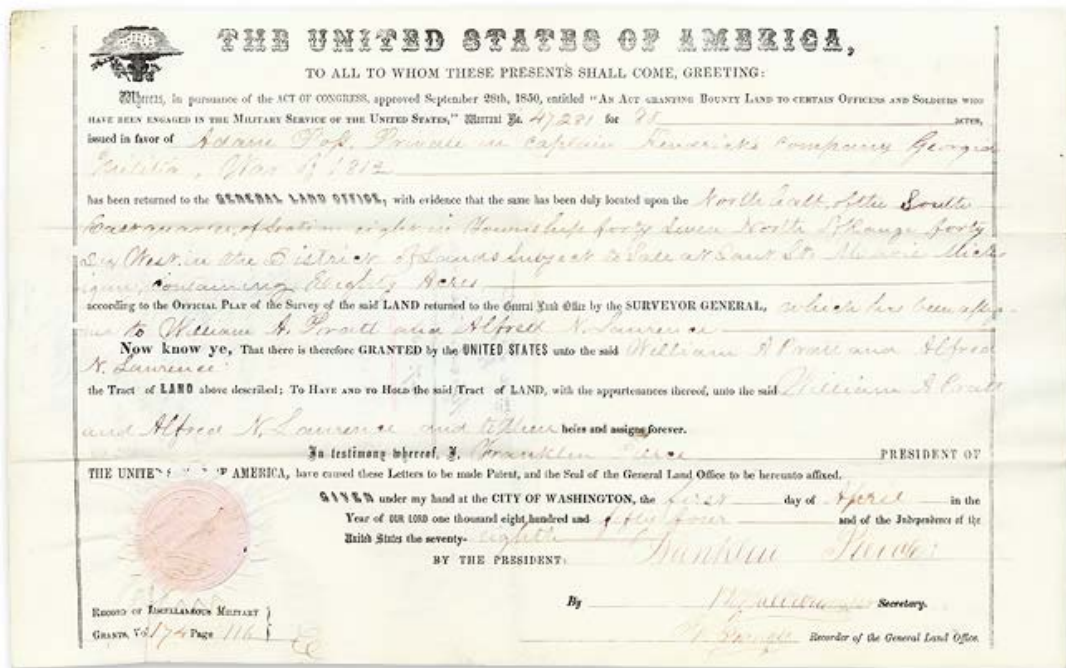 THE UNITED STATES OF AMERICA,
TO ALL TO WHOM THESE PRESENTS SHALL COME, GREETING:
Whereas, in pursuance of the ACT OF CONGRESS, approved September 28th, 1850, entitled "AN ACT GRANTING BOUNTY LAND TO CERTAIN OFFICERS AND SOLDIERS WHO
HAVE BEEN ENGAGED IN THE MILITARY SERVICE OF THE UNITED STATES," Warrant No. 47281 for acres,
issued in favor of Adam Private in Captain Company Georgia
Militia, War of 1812
has been returned to the GENERAL LAND OFFICE, with evidence that the same has been duly located upon the North half of the South
East quarter, of Section eight, in Township forty seven North of Range forty
six West, in the District of Lands subject to Sale at Saut Ste Marie Mich-
igan, containing Eighty Acres
according to the OFFICIAL PLAT of the Survey of the said LAND returned to the General Land Office by the SURVEYOR GENERAL, which has been assign-
ed to William A. Pratt and Alfred N. Lawrence
Now know ye, That there is therefore GRANTED by the UNITED STATES unto the said William A Pratt and Alfred
N. Lawrence
the Tract of LAND above described; TO HAVE AND TO HOLD the said Tract of LAND, with the appurtenances thereof, unto the said William A Pratt
and Alfred N. Lawrence and to their heirs and assigns forever.
In testimony whereof, I, Franklin Pierce PRESIDENT OF
THE UNITED STATES OF AMERICA, have caused these Letters to be made Patent, and the Seal of the General Land Office to be hereunto affixed.
GIVEN under my hand at the CITY OF WASHINGTON, the first day of April in the
Year of OUR LORD one thousand eight hundred and fifty four and of the Independence of the
United States the seventy-eighth
BY THE PRESIDENT: Franklin Pierce
By Secretary.
RECORD OF MISCELLANEOUS MILITARY
GRANTS, Vol 174 Page 116
Recorder of the General Land Office.